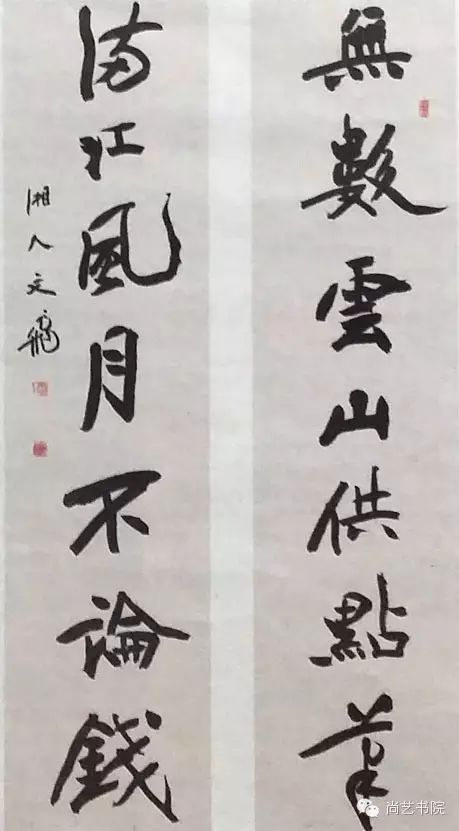 無數雲山供點筆
滿江風月不論錢
湘人文
尚艺书院